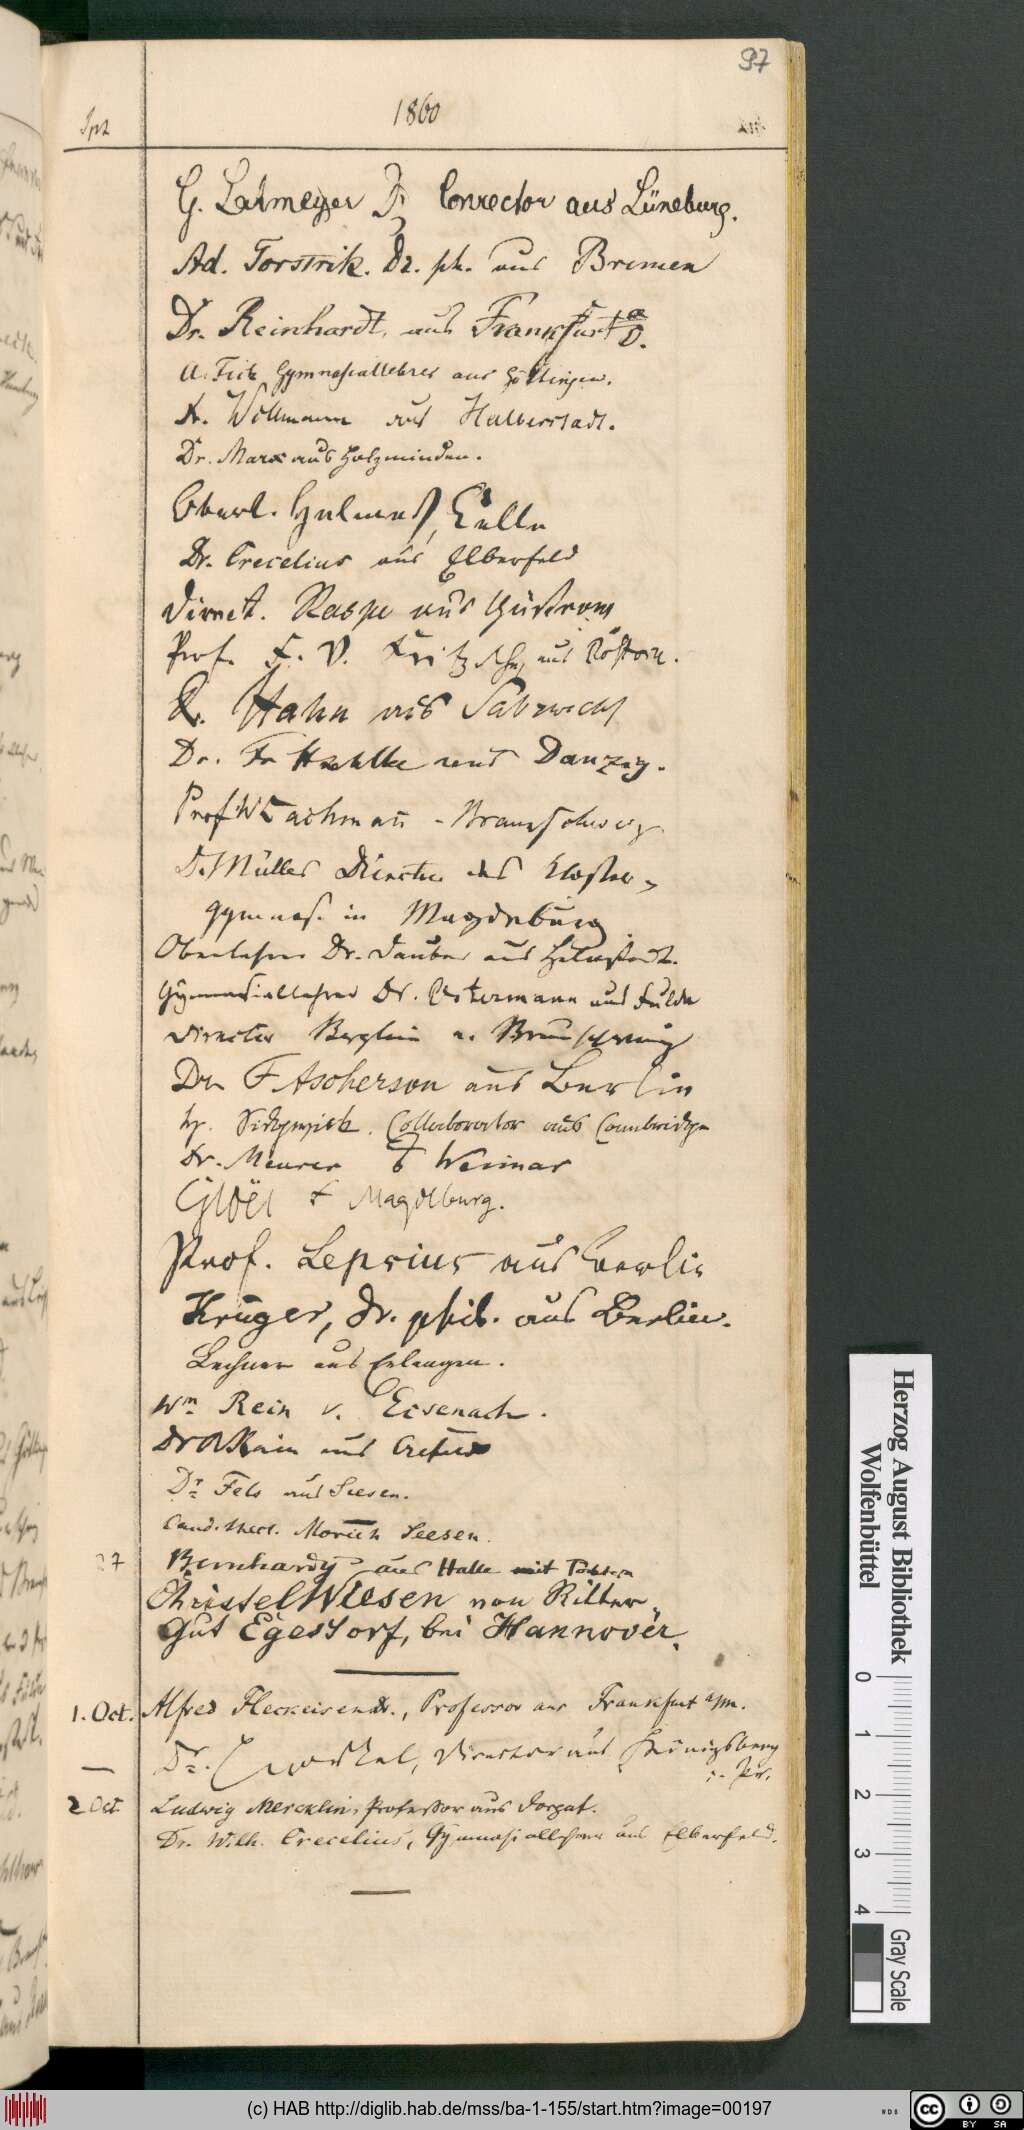 97
Spt
1860
G. Latmeyer Dr Conrector aus Lüneburg.
Ad. Torstrik. Dr. ph. aus Bremen
Dr. Reinhardt, aus Frankfurt a/O.
A. Fick Gymnasiallehrer aus Göttingen.
Dr. Wollmann aus Halberstadt.
Dr. Marx aus Holzminden.
Oberl. Celle
Dr. Crecelius aus Elberfeld
Direct. Raspe aus Güstrow
Prof. F. V. Fritzsche, aus Rostock.
Dr. Hahn aus Salzwedel
Dr. Fr aus Danzig.
Prof W Lachmann - Braunschweig
Dr Müller Director des Kloster-
gymnas. in Magdeburg
Oberlehrer Dr. Dauber aus Helmstedt.
Gymnasiallehrer Dr. Ostermann aus Fulda
Director a. Braunschweig
Dr. F Ascherson aus Berlin
Collaborator aus Cambridge
Dr. Meurer Weimar
Gloël Magdeburg.
Prof. Lepsius aus Berlin
Krüger, Dr. phil. aus Berlin.
Lechner aus Erlangen.
Wm Rein v. Eisenach.
Dr Rein aus Crefeld
Dr Fels aus Seesen.
Cand. theol. Seesen.
27
Bernhardy aus Halle mit Tochter
Christel Wiesen von Ritter-
Gut Egestorf, bei Hannover.
1. Oct. Alfred Fleckeisen dr., Professor aus Frankfurt a/m.
Dr. Director aus Königsberg
i. Pr.
2 Oct Ludwig Mercklin, Professor aus Dorpat.
Dr. Wilh. Crecelius, Gymnasiallehrer aus Elberfeld.
Herzog August Bibliothek
Wolfenbüttel
0 1 2 3 4
Gray Scale
(c) HAB http://diglib.hab.de/mss/ba-1-155/start.htm?image=00197
WDB
cc
BY SA